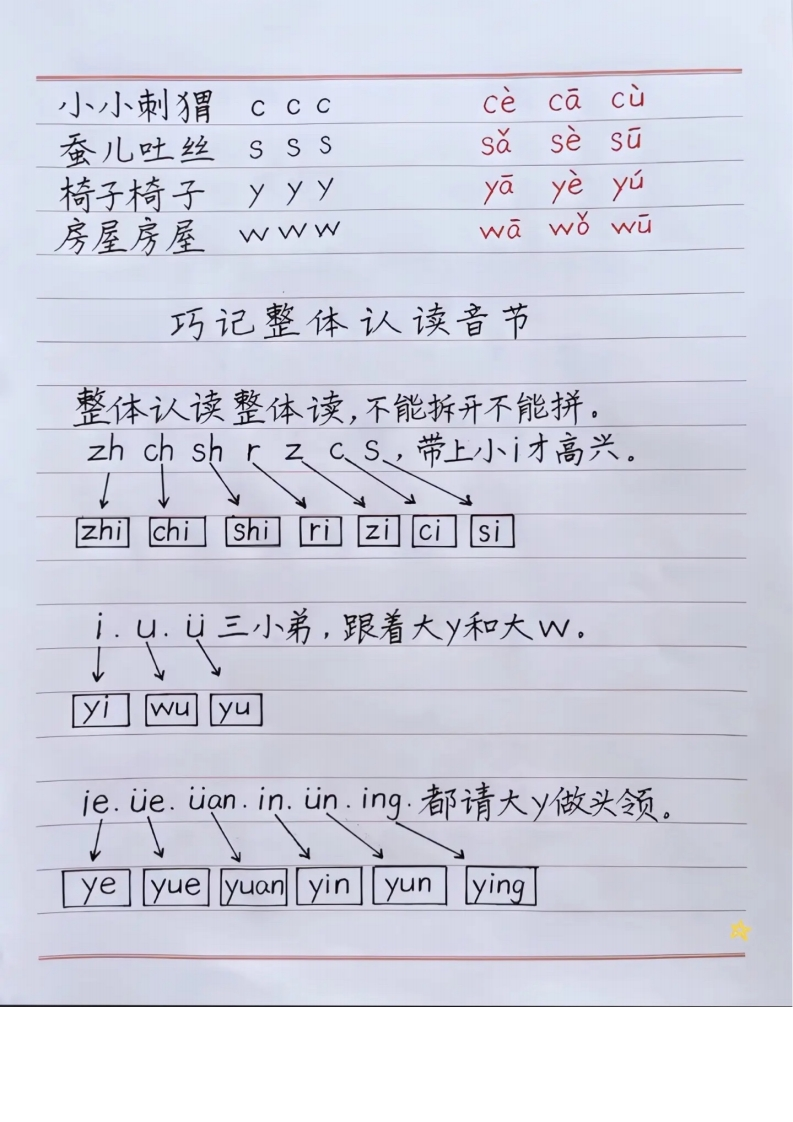 小小刺猬 c c c cè cā cù
蚕儿吐丝 s s s sǎ sè sū
椅子椅子 y y y yā yè yú
房屋房屋 w w w wā wǒ wū
巧记整体认读音节
整体认读整体读，不能拆开不能拼。
zh ch sh r z c s，带上小i才高兴。
zhi chi shi ri zi ci si
i．u．ü三小弟，跟着大y和大w。
yi wu yu
ie．üe．üan．in．ün．ing．都请大y做头领。
ye yue yuan yin yun ying